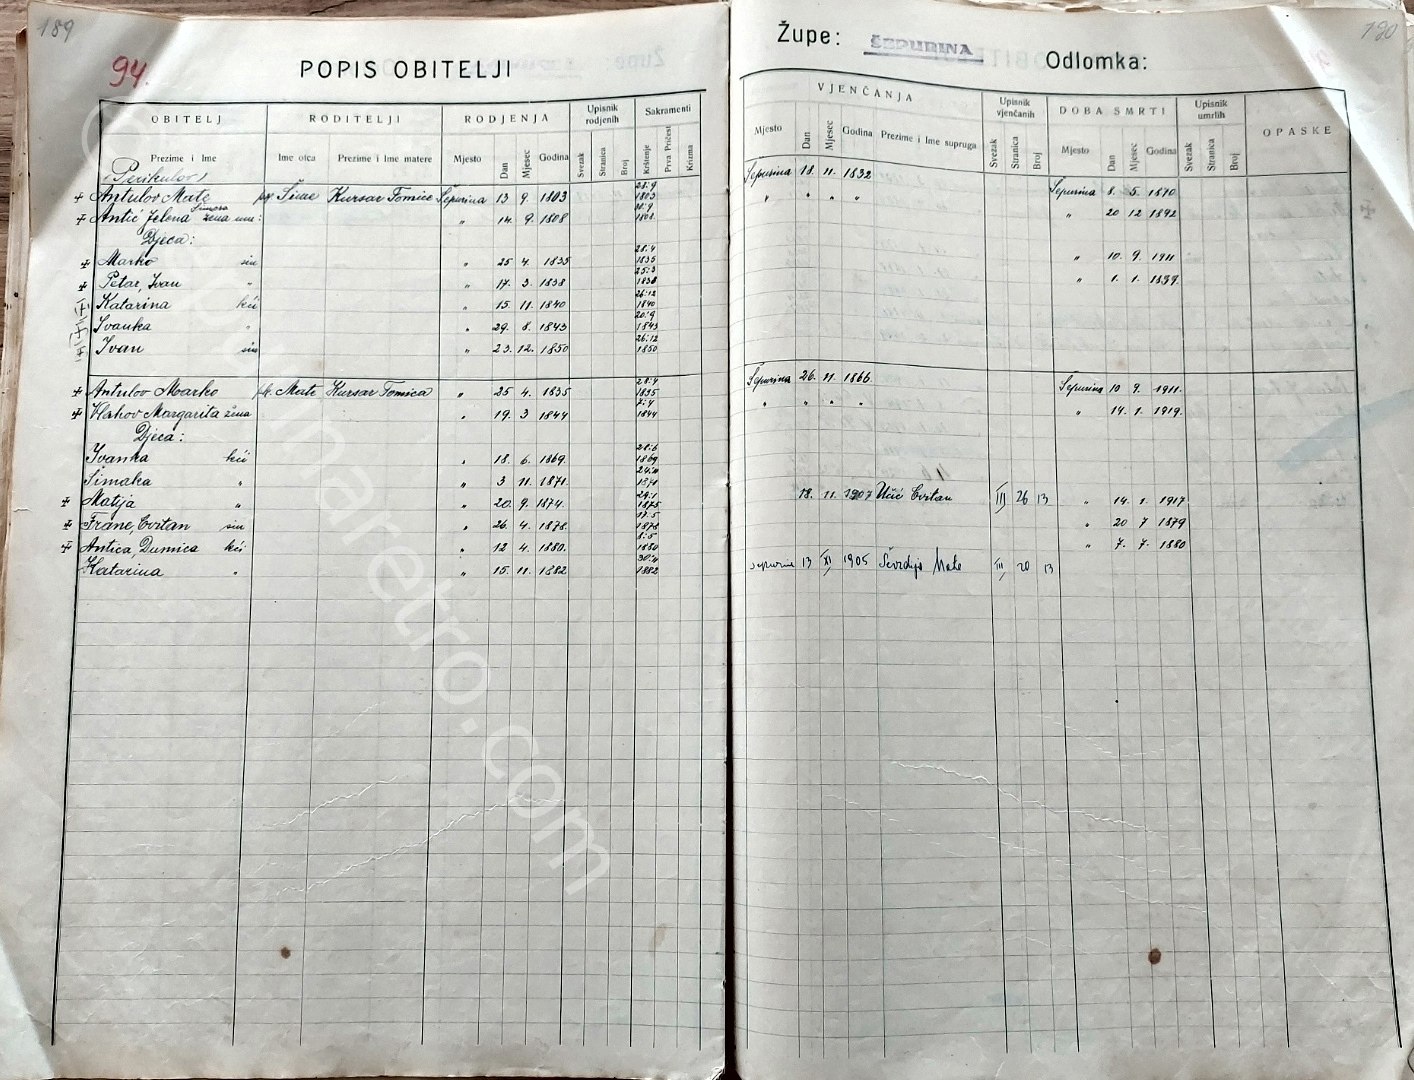 189
94.
POPIS OBITELJI
OBITELJ RODITELJI RODJENJA Upisnik rodjenih Sakramenti
Prezime i Ime Ime otca Prezime i Ime matere Mjesto Dan Mjesec Godina Svezak Stranica Broj Krštenje Prva Pričest Krizma
(Perikulov)
Antulov Mate pk. Šime Kursar Tomice Šepurina 13 9. 1803 28.9 1803
Antić Jelena Šimosa žena „ 14. 9. 1808 1808.
Djeca:
Marko sin „ 25 4. 1835 28.4 1835
Petar, Ivan „ „ 17. 3. 1838 25.3 1838
Katarina kći „ 15. 11. 1840 26.12 1840
Ivanka „ „ 29. 8. 1843 20.9 1843
Ivan sin „ 23. 12. 1850 26.12 1850
Antulov Marko pk. Mate Kursar Tomica „ 25 4. 1835 28.4 1835
Vlahov Margarita žena „ 19. 3 1844 7.4 1844
Djeca:
Ivanka kći „ 18. 6. 1869. 28.6 1869
Šimaka „ „ 3 11. 1871. 24.11 1871
Matija „ „ 20. 9. 1874. 24.1 1875
Frane, Cvitan sin „ 26. 4. 1878. 17.5 1878
Antica, Dumica kći „ 12 4. 1880. 8.5 1880
Katarina „ „ 15. 11. 1882 30.11 1882
sepurinaretro.com
190
Župe: ŠEPURINA Odlomka:
VJENČANJA Upisnik vjenčanih DOBA SMRTI Upisnik umrlih OPASKE
Mjesto Dan Mjesec Godina Prezime i Ime supruga Svezak Stranica Broj Mjesto Dan Mjesec Godina Svezak Stranica Broj
Šepurina 18. 11. 1832 Šepurina 8. 5. 1870
„ „ „ „ „ 20 12 1892
„ 10. 9. 1911
„ 1. 1. 1839.
Šepurina 26. 11. 1866 Šepurina 10 9. 1911.
„ „ „ „ „ 14. 1. 1919.
18. 11. 1907 Učić Cvitan III 26 13 „ 14. 1. 1917
„ 20 7 1879
„ 7. 7. 1880
Šepurine 13 XI, 1905 Ševrdija Mate III, 20 13